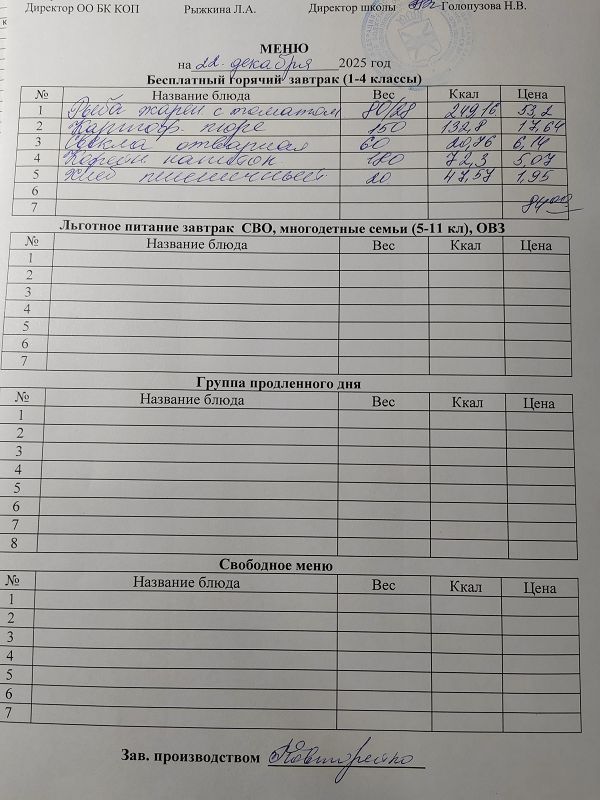 Директор ОО БК КОП Рыжкина Л.А. Директор школы Голопузова Н.В.
МЕНЮ
на 22 декабря 2025 год
Бесплатный горячий завтрак (1-4 классы)
№ Название блюда Вес Ккал Цена
1 Рыба жарен с томатом 80/28 249,16 53,2
2 Картоф. пюре 150 132,8 17,64
3 Свекла отварная 60 20,76 6,14
4 Кофейн напиток 180 72,3 5,07
5 Хлеб пшеничный 20 47,57 1,95
6
7 84,00
Льготное питание завтрак СВО, многодетные семьи (5-11 кл), ОВЗ
№ Название блюда Вес Ккал Цена
1
2
3
4
5
6
7
Группа продленного дня
№ Название блюда Вес Ккал Цена
1
2
3
4
5
6
7
8
Свободное меню
№ Название блюда Вес Ккал Цена
1
2
3
4
5
6
7
Зав. производством